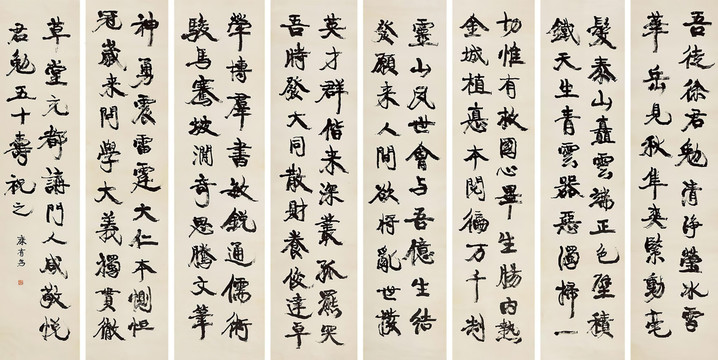 吾徒徐君勉清淨瑩冰雪
華岳見秋隼爽緊動毫
髮泰山矗雲端正色壁積
鐵天生青雲器惡濁掃一
切惟有救國心畢生腸內熱
金城植惪本閱徧万千刦
靈山夙世會与吾億生結
發願来人間欲將亂世撥
英才群偕来深叢孤羆突
吾時發大同散財養俊達卓
犖博羣書敏銳通儒術
駿馬騫坡澗奇思騰文筆
神勇震雷霆大仁本惻怛
冠歲来問學大義獨貫徹
草堂充都講門人咸敬悅
君勉五十壽祝之
康有為